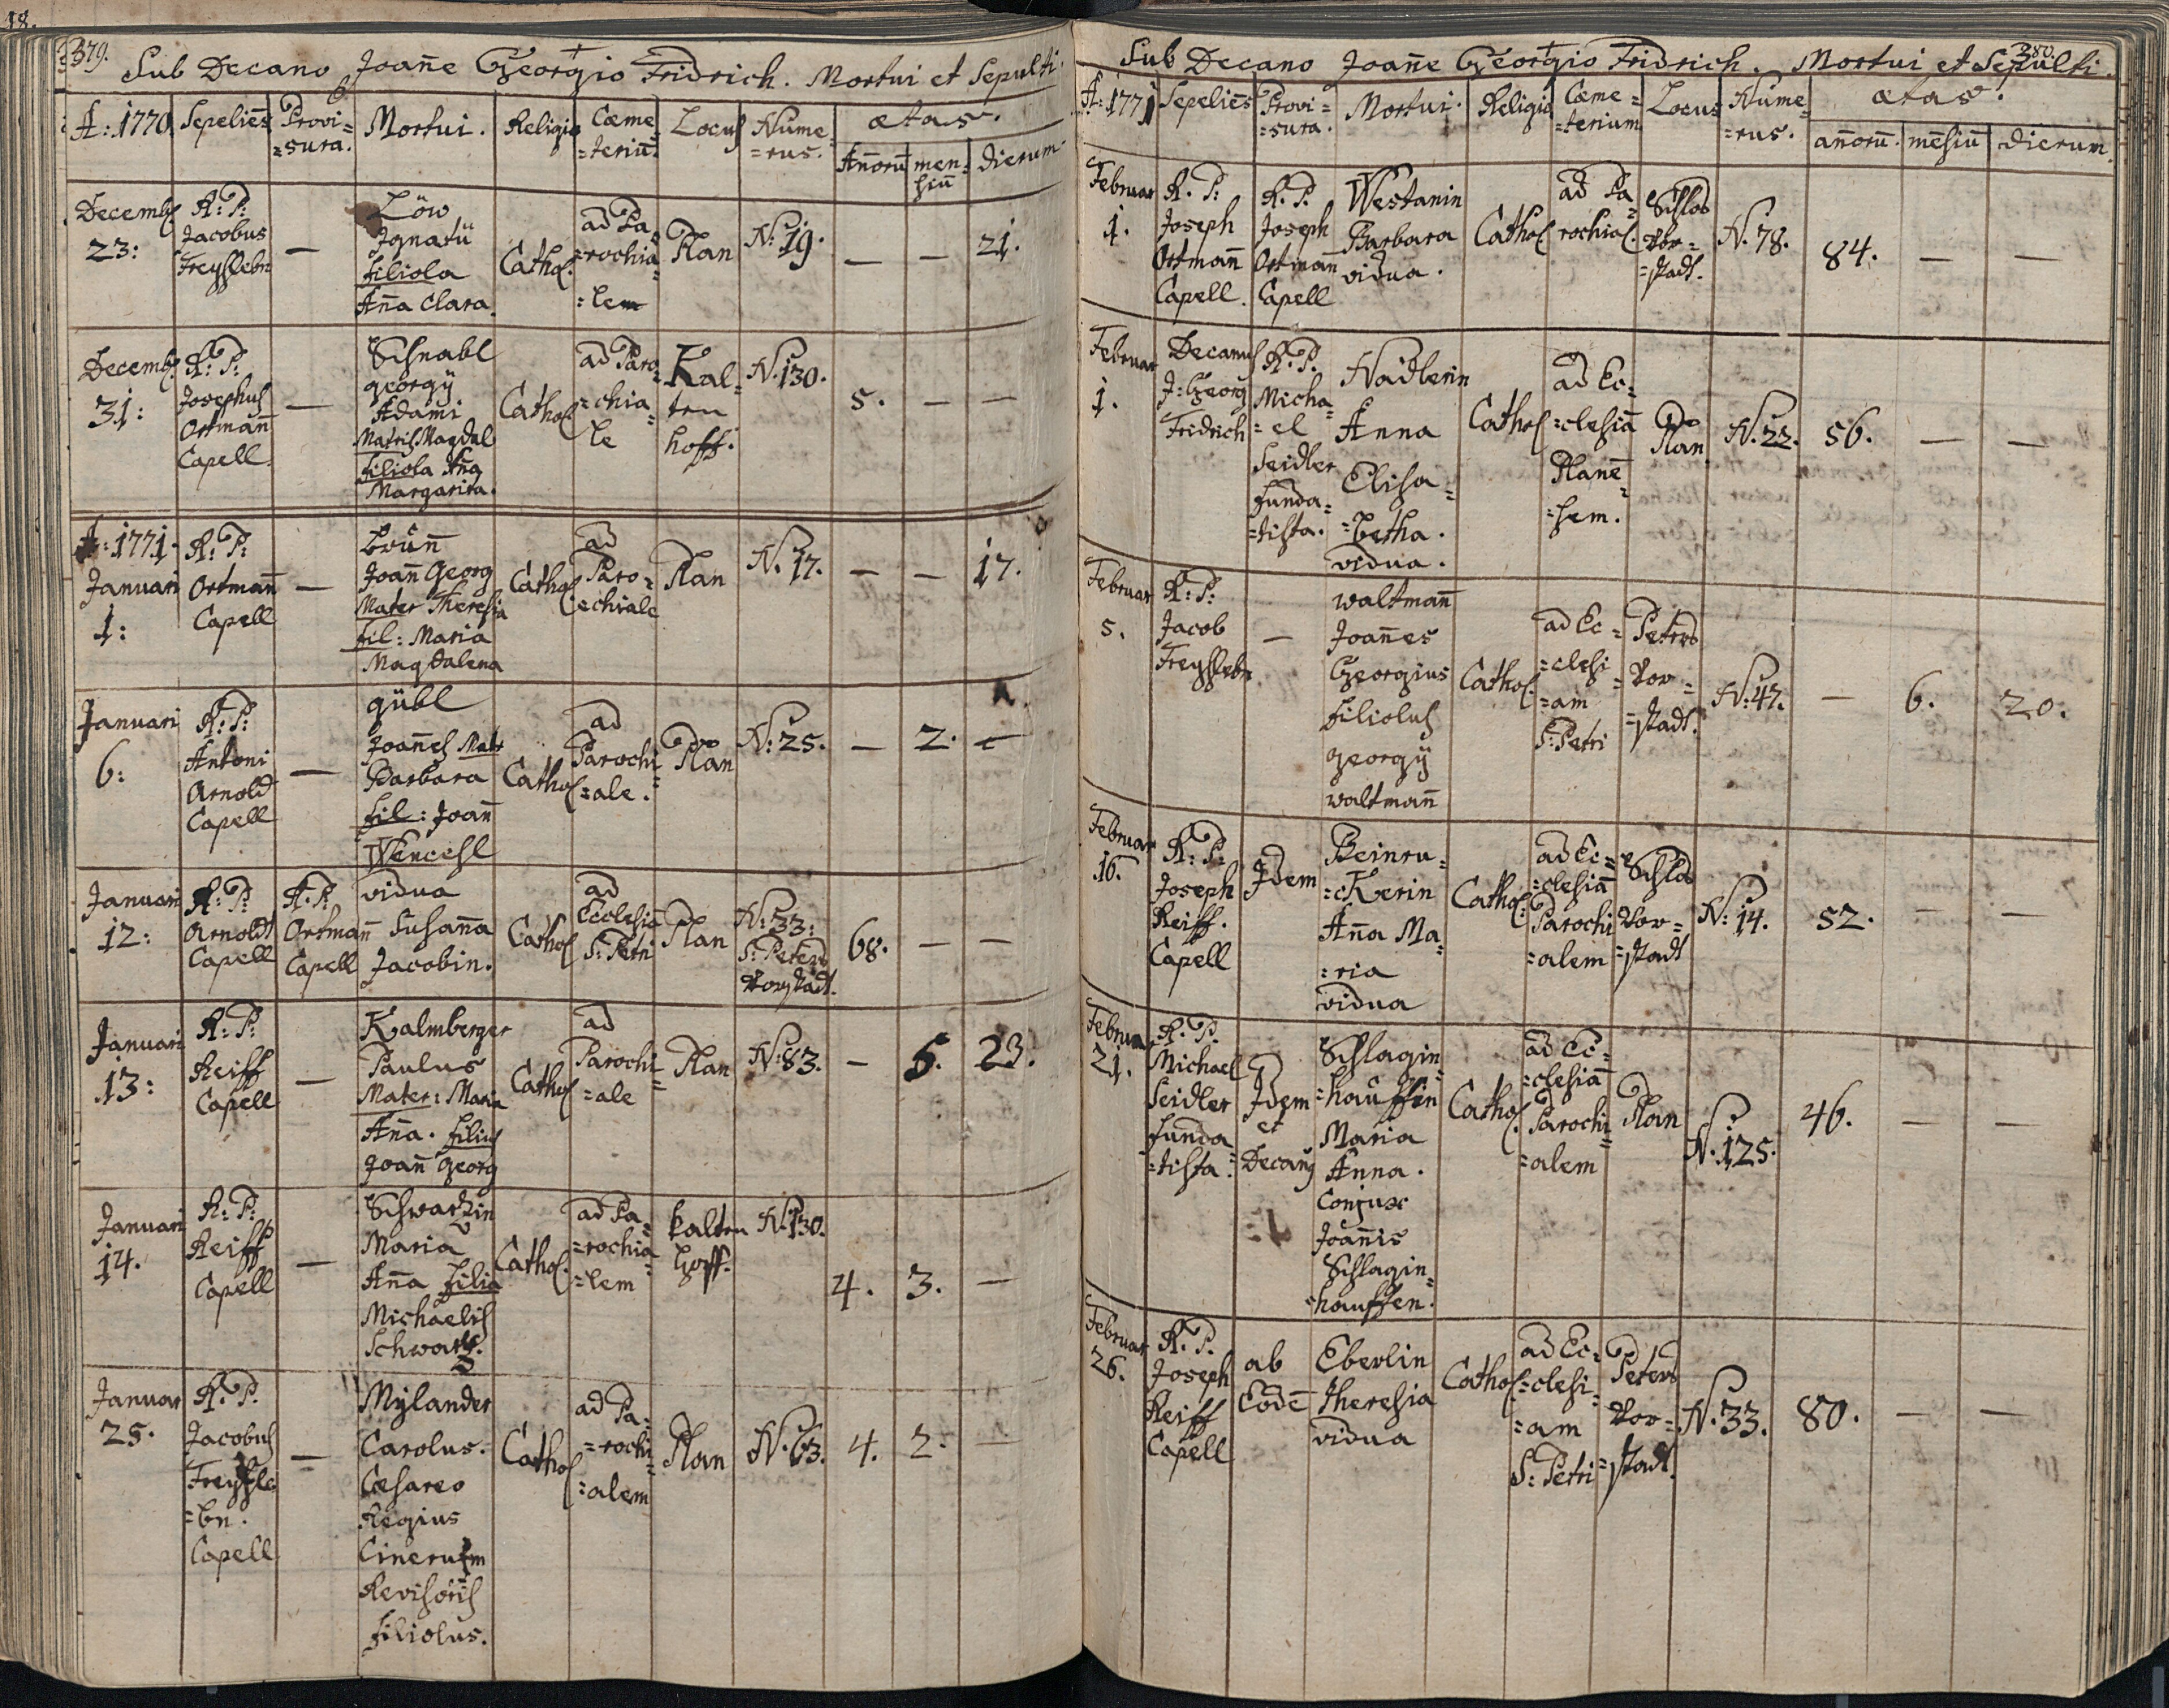 18.
379.
Sub Decano Joañe Georgio Fridrich. Mortui et Sepulti.
A: 1770 Sepelieñs Provi= Mortui. Religio Cæme Locus Nume ætas.
=sura. =teriū. =rus. Añorū men= dierum.
siū
Decemb. R: P: Löw
23: Jacobus — Ignatii Cathol. ad Pa= Plan N: 19. — — 21.
Freysslebn filiola =rochia=
Aña Clara. =lem
Decemb. R: P: Schnabl ad Paro= Kal= N. 130.
31: Josephus — georgÿ Cathol =chia= ten 5. — —
Ortmañ Adami le hoff.
Capell. Matris Magdal
filiola Aña
Margarita.
A: 1771. R: P: Brün ad
Januari Ortmañ — Joañ Georg Cathol Paro= Plan N. 17. — — 17.
1: Capell Mater Theresia =chiale
fil: Maria
Magdalena
Januari R: P: gübl ad
6: Antoni — Joañes Mater Cathol Parochi= Plan N: 25. — 2. —
Arnold Barbara =ale.
Capell fil: Joañ
Wencesl
Januari R: P: R. P. vidua ad N: 33:
12: Arnoldt Ortmañ Susaña Cathol Ecclesiā Plan S: Peters 68. — —
Capell Capell Jacobin. S: Petri Vorstadt.
Januari R: P: Kalmberger ad
13: Reiff — Paulus Cathol Parochi= Plan N: 83. — 5. 23.
Capell Mater: Maria =ale
Aña. filius
Joañ Georg
Januari R: P: Schwartzin ad Pa= kalten N. 130.
14. Reiff — Maria Cathol. =rochia= hoff. 4. 3. —
Capell Aña filia =lem
Michaelis
Schwartz.
Januar R. P. Mÿlander ad Pa=
25. Jacobus — Carolus. Cathol =rochi= Plan N. 63. 4. 2. —
Freyssle= Cæsareo =alem
=bn. Regius
Capell Cinerum
Revisoris
filiolus.
380.
Sub Decano Joañe Georgio Fridrich. Mortui et Sepulti.
A: 1771 Sepelieñs Provi= Mortui. Religio Cæme= Locus Nume= ætas.
=sura. =terium =rus. añorū. mēsiū dierum.
Februar R. P: R. P. Westanin ad Pa= Schlos
1. Joseph Joseph Barbara Cathol rochial. Vor= N. 78. 84. — —
Ortmañ Ortmañ vidua. =stadt.
Capell. Capell
Februar Decanus R. P. Nadlerin ad Ec=
1. J: Georg Micha= Anna Cathol =clesiā Plan N. 22. 56. — —
Fridrich =el Elisa= Planē=
Seidler =betha. =sem.
Funda= vidua.
=tista.
Februar R: P: waltmañ ad Ec= Peters
5. Jacob — Joañes Cathol. =clesi= Vor= N: 47. — 6. 20.
Freysslebn Georgius =am =stadt.
filiolus S: Petri
georgÿ
waltmañ
Februar R: P: Idem Beinru= ad Ec= Schlos
16. Joseph =ckerin Cathol. =clesiā Vor= N: 14. 52. — —
Reiff. Aña Ma= Parochi =stadt
Capell =ria =alem
vidua
Februar R. P. Schlagin= ad Ec=
21. Michael Idem =hauffin Cathol. =clesiā Plan N. 125. 46. — —
Seidler et Maria Parochi=
Funda Decanus Anna. =alem
=tista. Conjux
Joañis
Schlagin=
=hauffen.
Februar R. P. ab Eberlin ad Ec= Peters
26. Joseph Eodē Theresia Cathol =clesi= Vor= N. 33. 80. — —
Reiff vidua =am =stadt.
Capell S: Petri